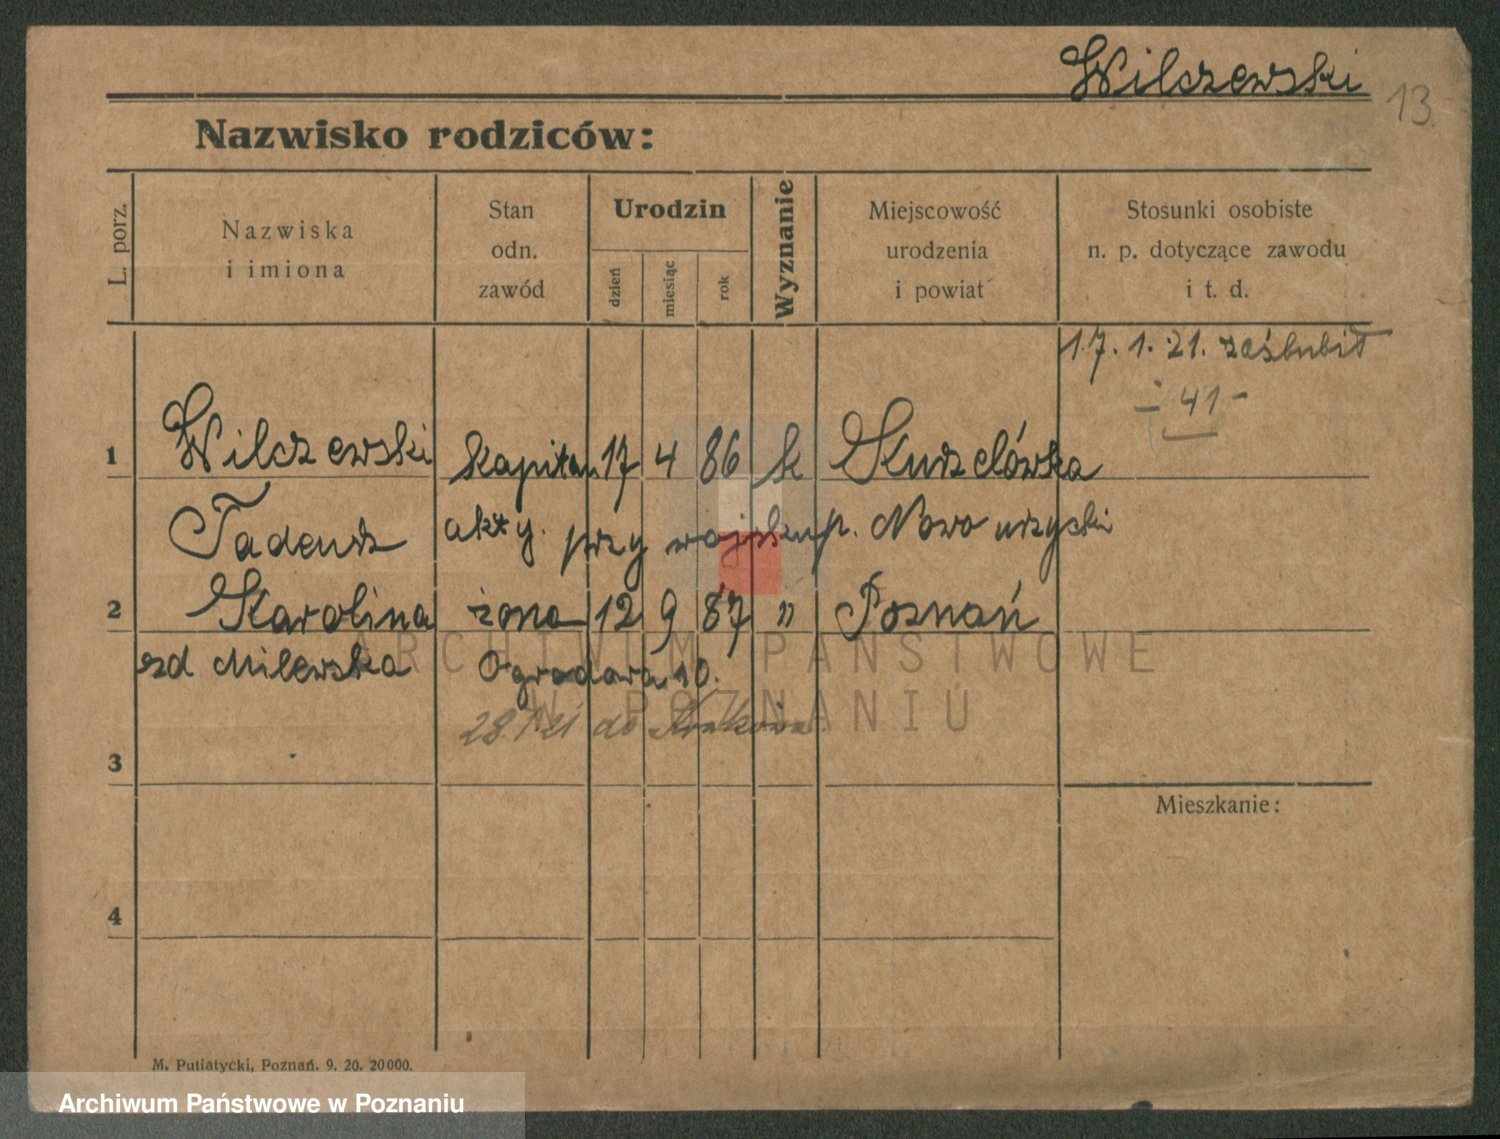 Wilczewski
13
Nazwisko rodziców:
L. porz.
Nazwiska
i imiona
Stan
odn.
zawód
Urodzin
dzień
miesiąc
rok
Wyznanie
Miejscowość
urodzenia
i powiat
Stosunki osobiste
n. p. dotyczące zawodu
i t. d.
17. 1. 21. zaślubił
- 41 -
1 Wilczewski kapitan 17 4 86 k
Tadeusz akty. przy wojsku p. Nowo
2 Karolina żona 12 9 87 " Poznań
zd Milewska Ogrodowa 10.
do Krakowa
3
Mieszkanie:
4
ARCHIWUM PAŃSTWOWE
W POZNANIU
M. Putiatycki, Poznań. 9. 20. 20000.
Archiwum Państwowe w Poznaniu